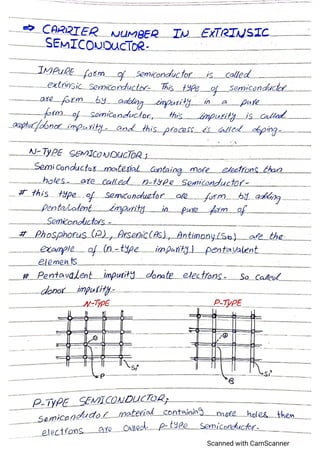 ⇒ CARRIER NUMBER IN EXTRINSIC
SEMICONDUCTOR-
IMPURE form of semiconductor is called
extrinsic semiconductor- This type of semiconductor
are form by adding impurity in a pure
form of semiconductor, this impurity is called
acceptor/donor impurity- and this process is called doping-
N-TYPE SEMICONDUCTOR;
Semiconductor material containg more electrons than
holes- are called n-type semiconductor-
# this type of semiconductor are form by adding
pentavalent impurity in pure form of
semiconductors-
# Phosphorus (P), Arsenic (As), Antimony (Sb) are the
example of (n-type impurity) pentavalent
elements
# Pentavalent impurity donate electrons- so called
donor impurity-
N-TYPE P-TYPE
P Si
B Si
P-TYPE SEMICONDUCTOR;
Semiconductor material containing more holes then
electrons are called p-type semiconductor-
Scanned with CamScanner